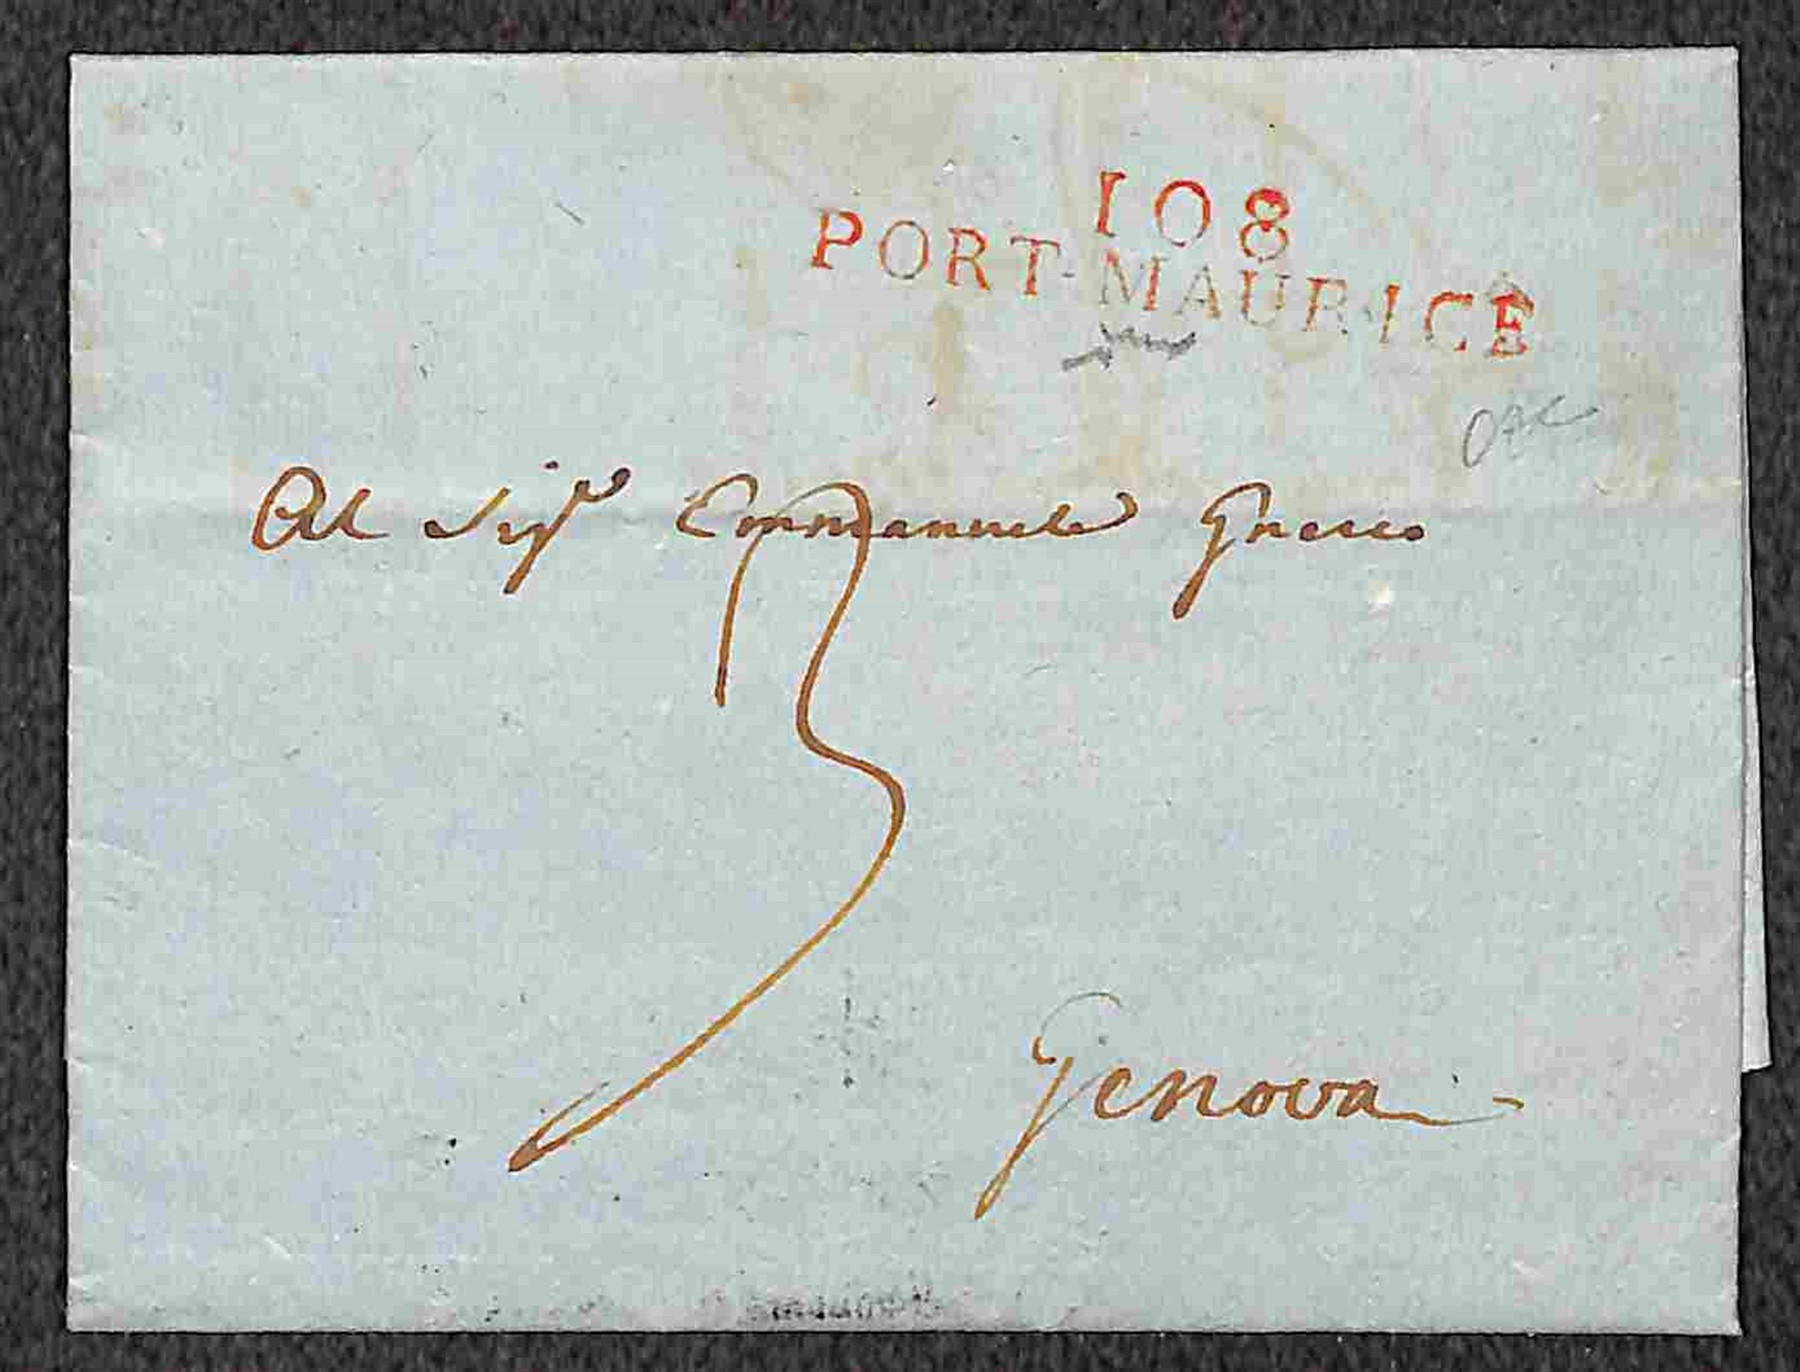 108
PORT-MAURICE
Al Sigr Emmanuele Gnecco
3
Genova